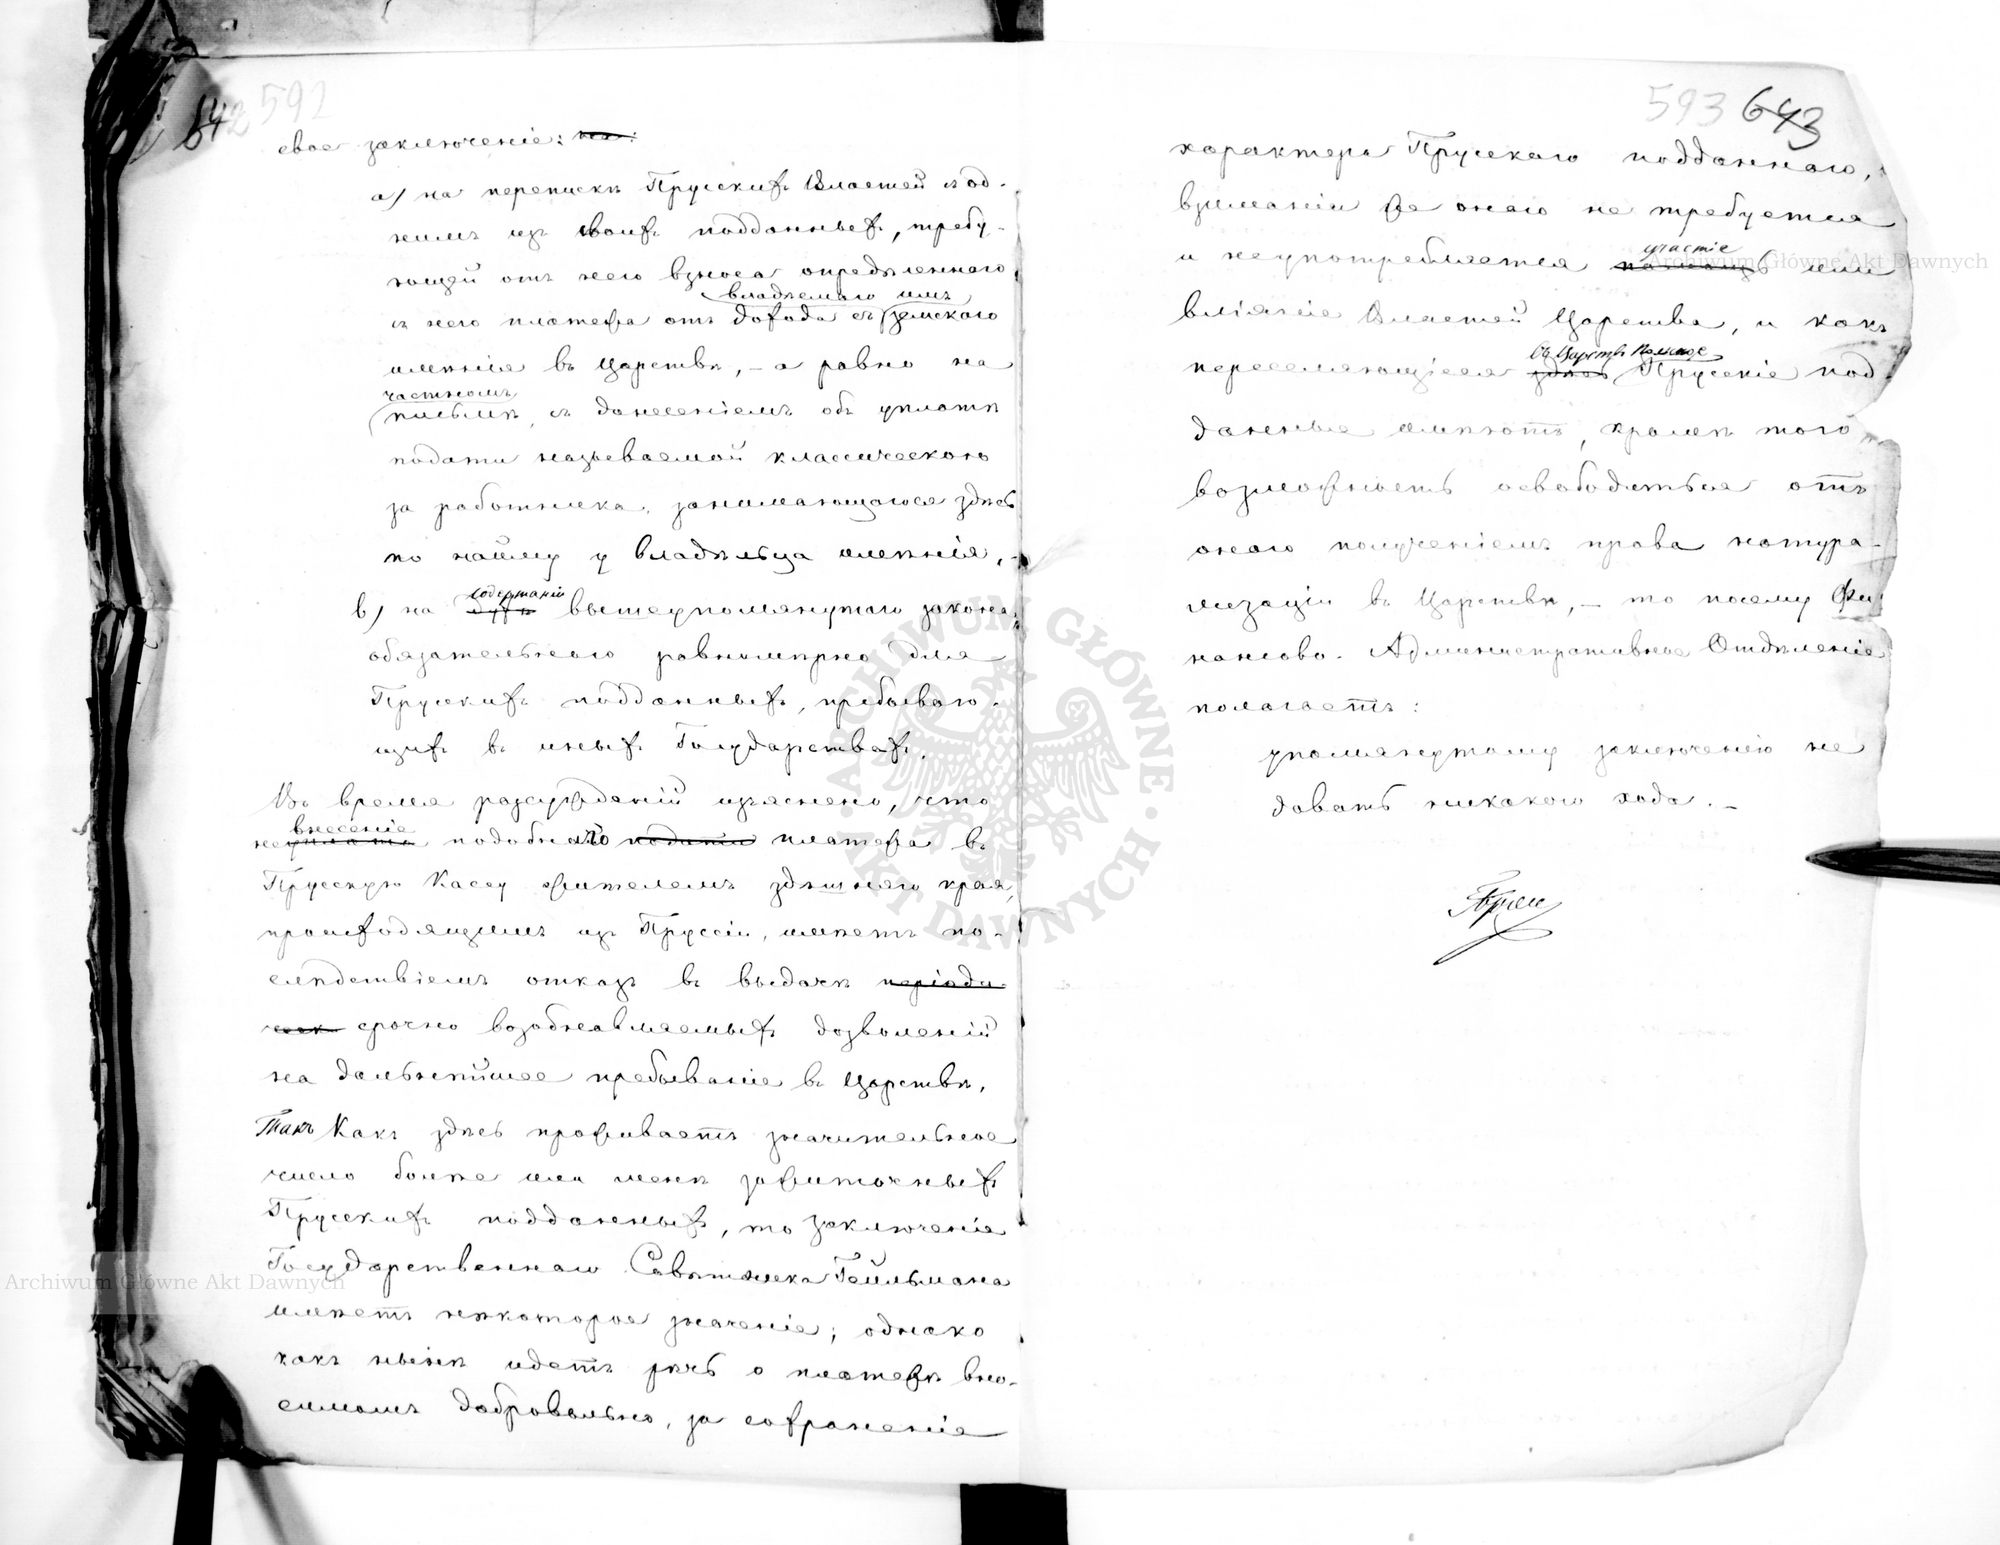 642 592
свое заключеніе:
а) на перепискѣ Прусскихъ Властей съ од-
нимъ изъ своихъ подданныхъ, требу-
ющей отъ него взноса опредѣленнаго
владѣемаго имъ
съ него платежа отъ дохода съ земскаго
имѣнія въ Царствѣ, - а равно на
частномъ
письмѣ, съ донесеніемъ объ уплатѣ
подати называемой классическою
за работника, занимающагося здѣсь
по найму у владѣльца имѣнія,
содержаніи
в) на духѣ вышеупомянутаго закона,
обязательнаго равномѣрно для
Прусскихъ подданныхъ, пребываю-
щихъ въ иныхъ Государствахъ.
Во время разсужденій изъяснено, что
внесеніе
неуплата подобнаго подати платежа въ
Прусскую Кассу жителемъ здѣшняго края,
происходящимъ изъ Пруссіи, имѣетъ по-
слѣдствіемъ отказъ въ выдачѣ періоди-
ческ срочно возобновляемыхъ дозволеній
на дальнѣйшее пребываніе въ Царствѣ.
Такъ Какъ здѣсь проживаетъ значительное
число болѣе или менѣе зажиточныхъ
Прусскихъ подданныхъ, то заключеніе
Государственнаго Совѣтника Гейльмана
имѣетъ нѣкоторое значеніе; однако
какъ нынѣ идетъ рѣчь о платежѣ вно-
симомъ добровольно, за сохраненіе
593 643
характера Прусскаго подданнаго,
взиманіи же онаго не требуется
участіе
и неупотребляется или
вліяніе Властей Царства, и какъ
въ Царствѣ Польское
переселяющіеся здѣсь Прусскіе под-
данные имѣютъ, кромѣ того
возможность освободиться отъ
онаго полученіемъ права натура-
лизаціи въ Царствѣ, - то посему Фи-
нансово-Административное Отдѣленіе
полагаетъ:
упомянутому заключенію не
давать никакого хода. -
ARCHIWUM GŁÓWNE AKT DAWNYCH
Archiwum Główne Akt Dawnych
Archiwum Główne Akt Dawnych